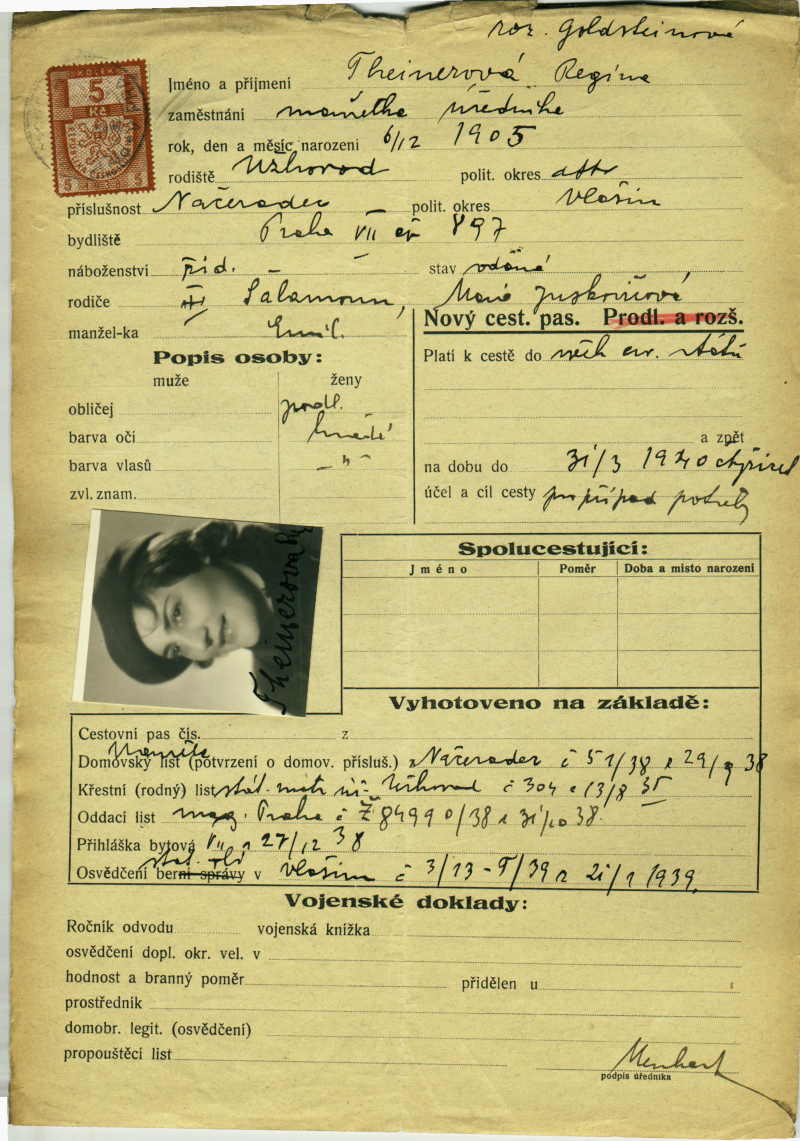 roz. Goldsteinová
KOLEK
5
Kč
5 5
Jméno a příjmení Theinerová Regina
zaměstnání manželka úředníka
rok, den a měsíc narození 6/12 1905
rodiště Užhorod polit. okres dtto
příslušnost Načeradec polit. okres Vlašim
bydliště Praha VII čp 897
náboženství žid. – stav vdaná
rodiče Šalamoun, Marie
manžel-ka Emil.
Nový cest. pas. Prodl. a rozš.
Popis osoby:
Platí k cestě do všech evr. států
muže ženy
obličej podl.
barva očí hnědé
a zpět
barva vlasů –"–
na dobu do 31/3 1940 čtyřicet
zvl. znam.
účel a cíl cesty pro případ potřeby
Theinerová Reg
Spolucestující:
Jméno Poměr Doba a místo narození
Vyhotoveno na základě:
Cestovní pas čís. z
Domovský list (potvrzení o domov. přísluš.) z Načeradec č 51/38 z 29/9 38
Křestní (rodný) list stát. matr Užhorod č 304 z 13/8 35
Oddací list mag. Praha č Ž 84990/38 z 31/10 38.
Přihláška bytová VII z 27/12 38
Osvědčení berní správy v Vlašim č 3/13-5/39 z 21/1 1939.
Vojenské doklady:
Ročník odvodu vojenská knížka
osvědčení dopl. okr. vel. v
hodnost a branný poměr přidělen u
prostředník
domobr. legit. (osvědčení)
propouštěcí list
podpis úředníka